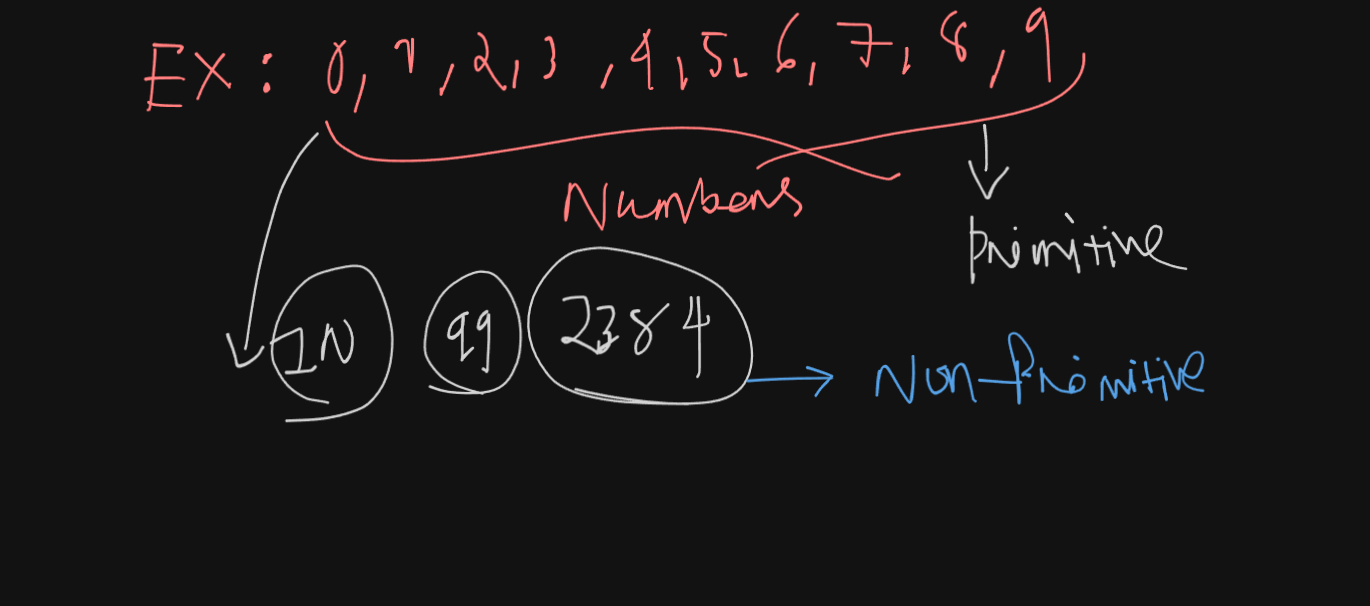 EX: 0, 1, 2, 3, 4, 5, 6, 7, 8, 9,
Numbers
primitive
99 2384
Non-Primitive